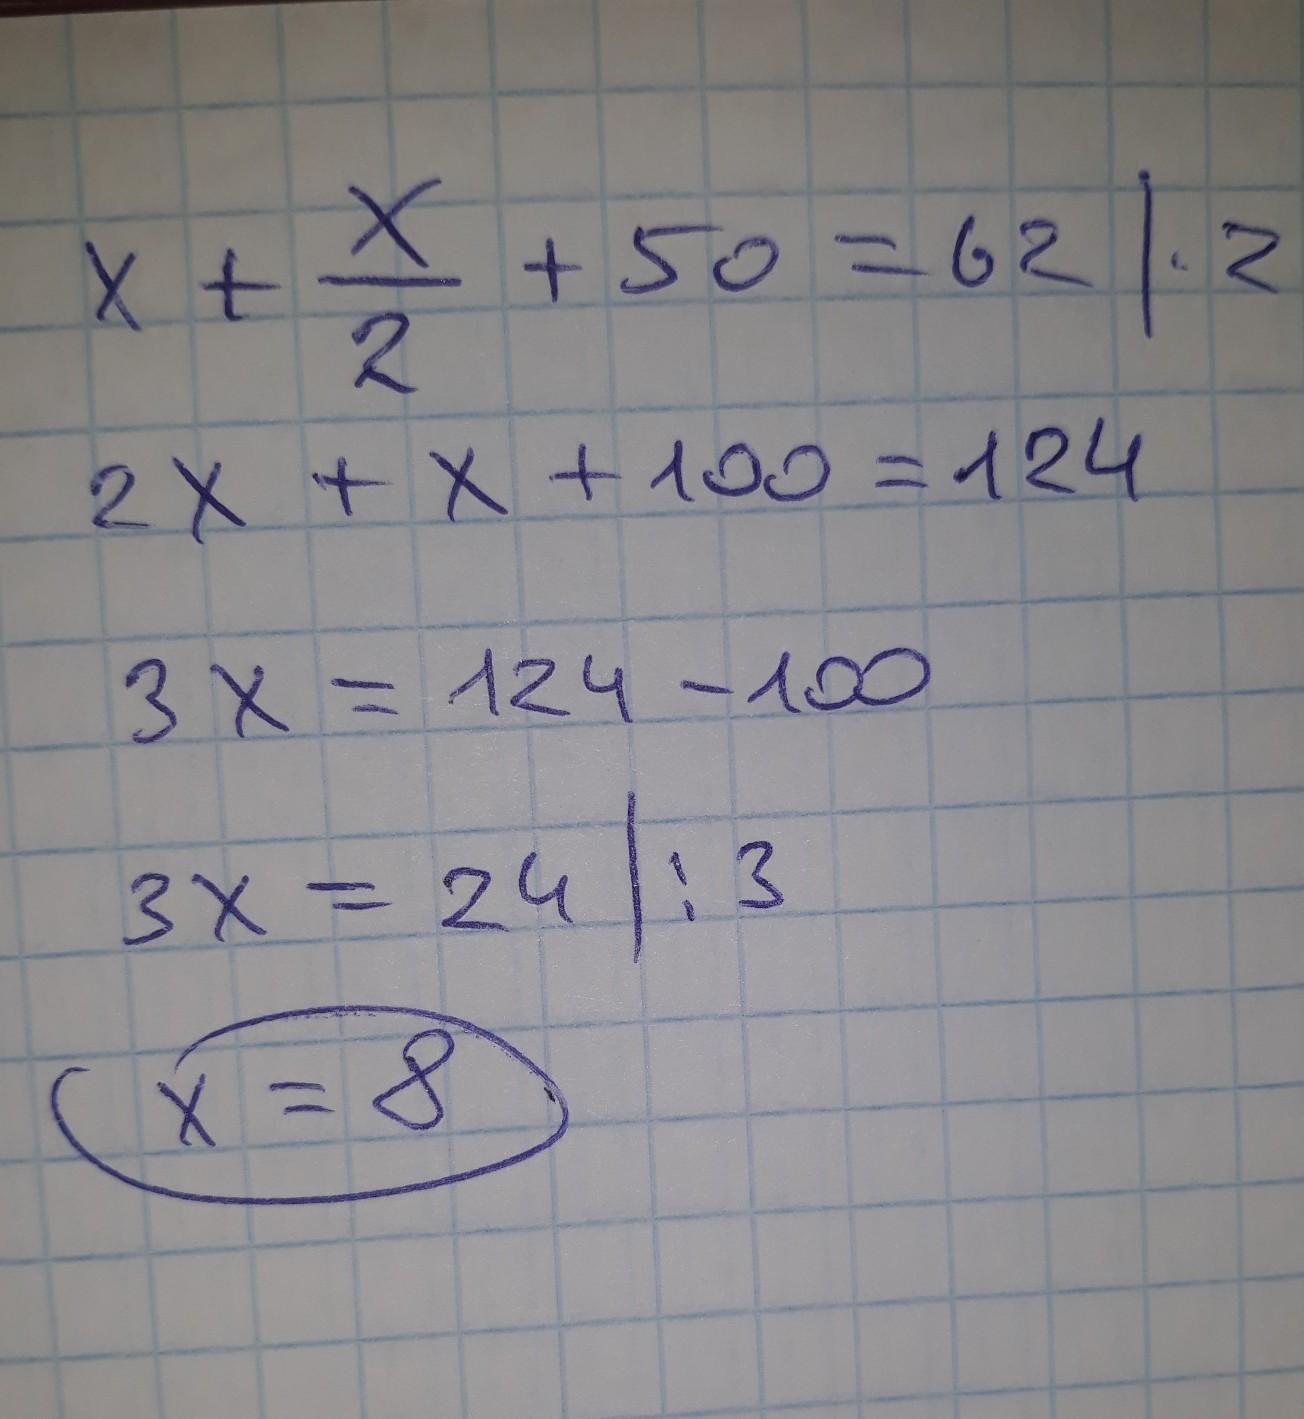 x + x/2 + 50 = 62 | · 2
2x + x + 100 = 124
3x = 124 - 100
3x = 24 | : 3
x = 8